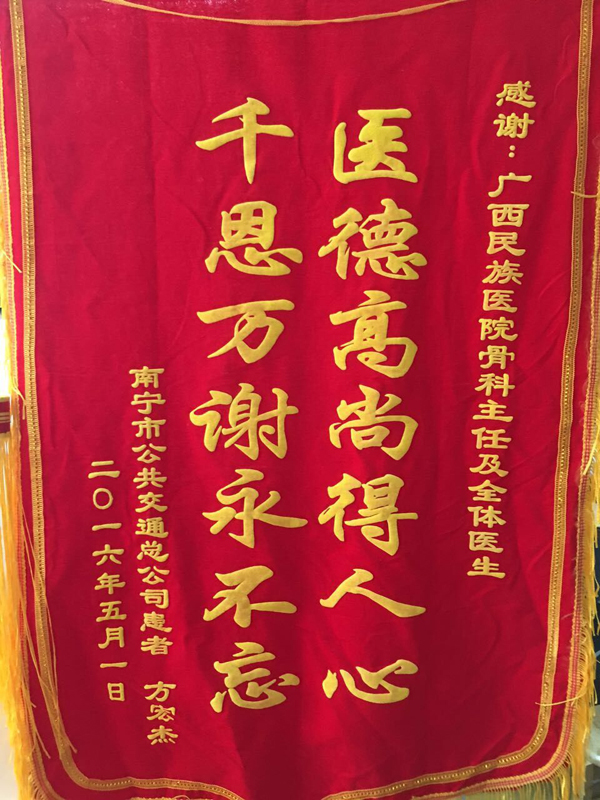 感谢：广西民族医院骨科主任及全体医生
医德高尚得人心
千恩万谢永不忘
南宁市公共交通总公司患者 方宏杰
二〇一六年五月一日